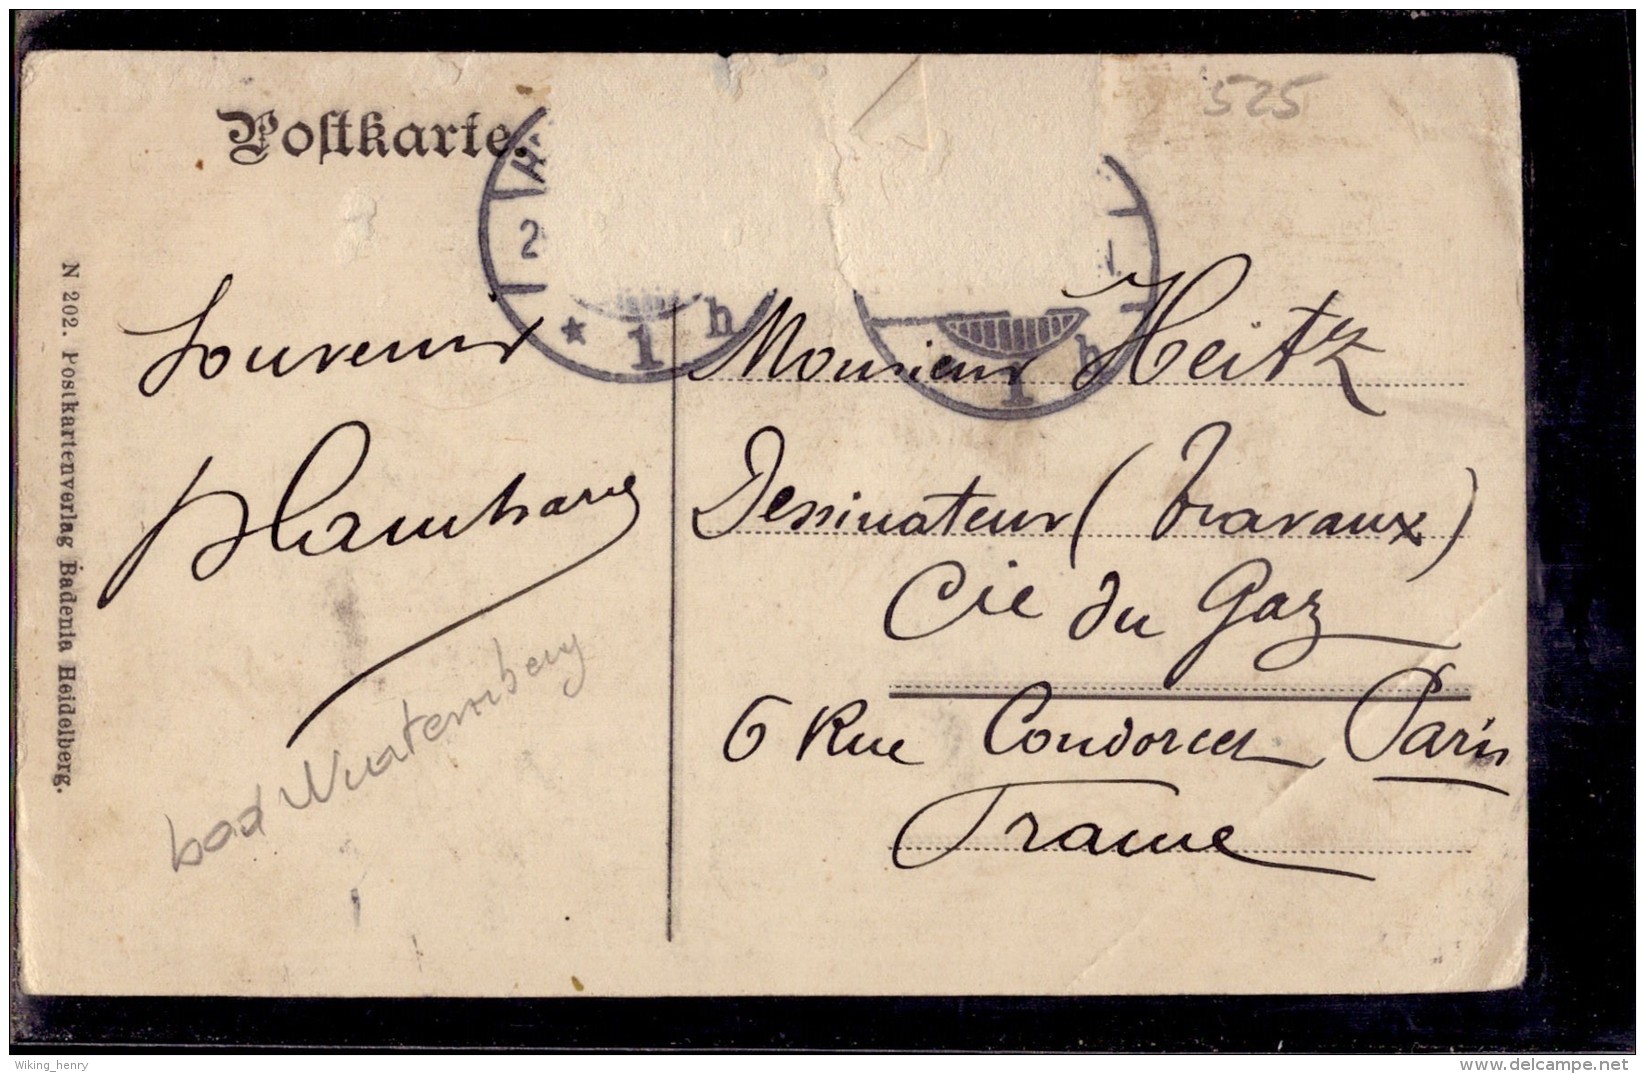 525
Postkarte.
2
* 1 h
h
1
Souvenir
Monsieur Heitz
Dessinateur (Travaux)
Cie du Gaz
6 Rue Condorcet Paris
France
bad
N 202. Postkartenverlag Badenia Heidelberg.
Wiking_henry
delcampe.net